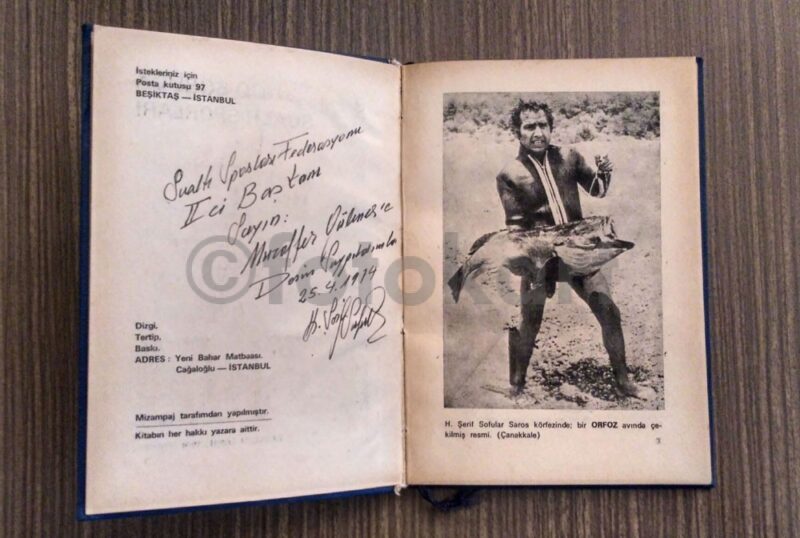 İstekleriniz için
Posta kutusu 97
BEŞİKTAŞ — İSTANBUL
Sualtı Sporları Federasyonu
II ci Başkanı
Sayın:
Muzaffer
Derin Saygılarımla
25.4.1974
H. Şerif
Dizgi.
Tertip.
Baskı.
ADRES : Yeni Bahar Matbaası.
Cağaloğlu — İSTANBUL
Mizampaj tarafımdan yapılmıştır.
Kitabın her hakkı yazara aittir.
H. Şerif Sofular Saros körfezinde; bir ORFOZ avında çe-
kilmiş resmi. (Çanekkale)
©fotokart